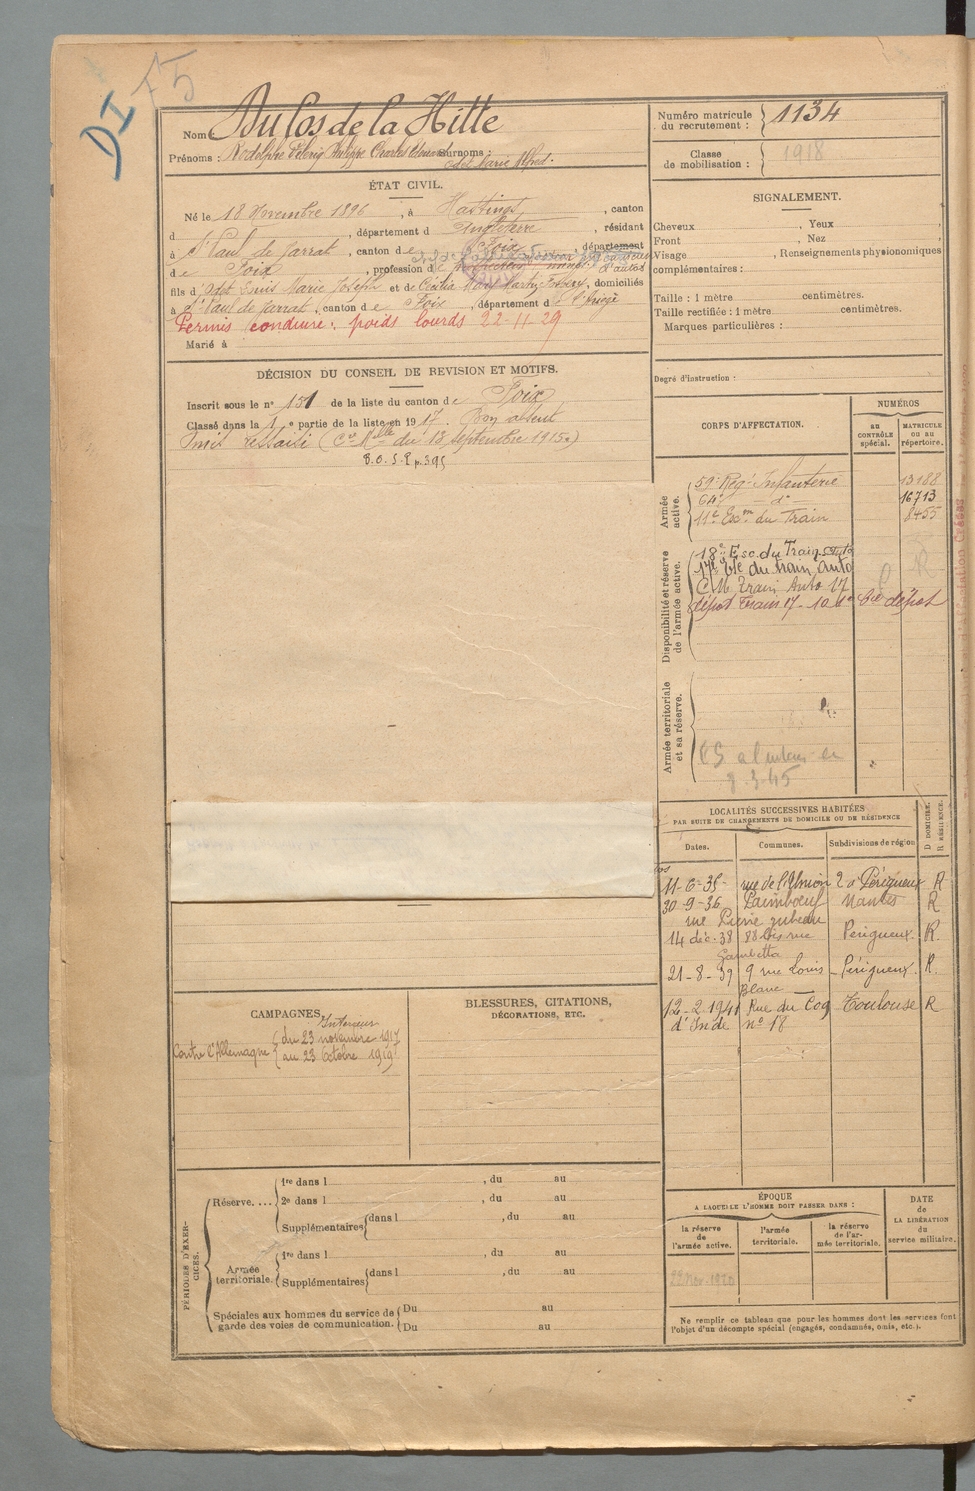 DI
F5
Nom : Du Los de la Hitte
Prénoms : Rodolphe Philippe Charles Surnoms :
Odet Marie Alfred.
Numéro matricule
du recrutement : 1134
Classe
de mobilisation : 1918
ÉTAT CIVIL.
Né le 18 Novembre 1896, à Hastings, canton
d , département d Angleterre, résidant
à St Paul de Jarrat, canton de Foix, département
de Foix, profession de
fils d'Odet Louis Marie Joseph et de Cécilia, domiciliés
à St Paul de Jarrat, canton de Foix, département de l'Ariège
Permis conduire : poids lourds 22-11-29
Marié à
SIGNALEMENT.
Cheveux , Yeux
Front , Nez
Visage , Renseignements physionomiques
complémentaires :
Taille : 1 mètre centimètres.
Taille rectifiée : 1 mètre centimètres.
Marques particulières :
Degré d'instruction :
DÉCISION DU CONSEIL DE REVISION ET MOTIFS.
Inscrit sous le n° 151 de la liste du canton de Foix
Classé dans la 1e partie de la liste en 1917. Bon absent
Omis ressaisi (Cre Mlle du 18 Septembre 1915.)
B.O.S.P p.395
CORPS D'AFFECTATION.
NUMÉROS
AU
CONTRÔLE
spécial.
MATRICULE
ou au
répertoire.
Armée
active.
59e Régt Infanterie 13188
64e d° 16713
11e Escm du Train 8455
Disponibilité et réserve
de l'armée active.
18e Esc. du Train auto
17e Bie du train auto
C.M. Train Auto 17
dépôt Train 17 - 10 Cie dépôt
R
Armée territoriale
et sa réserve.
8.3.45
LOCALITÉS SUCCESSIVES HABITÉES
PAR SUITE DE CHANGEMENTS DE DOMICILE OU DE RÉSIDENCE
D. DOMICILE.
R. RÉSIDENCE.
Dates. Communes. Subdivisions de région
11-6-35 rue de l'Union 2 à Périgueux R
30-9-36 Paimbœuf Nantes R
rue Pierre
14 déc. 38 88 bis rue Périgueux. R.
Gambetta
21-8-39 9 rue Louis Périgueux. R.
Blanc
12-2-1941 Rue du Coq Toulouse R
d'Inde n° 18
CAMPAGNES
Intérieur
Contre l'Allemagne du 23 novembre 1917
au 23 Octobre 1919
BLESSURES, CITATIONS,
DÉCORATIONS, ETC.
PÉRIODES D'EXER-
CICES.
Réserve.... 1re dans l , du au
2e dans l , du au
Supplémentaires dans l , du au
Armée
territoriale. 1re dans l , du au
Supplémentaires dans l , du au
Spéciales aux hommes du service de
garde des voies de communication. Du au
Du au
ÉPOQUE
A LAQUELLE L'HOMME DOIT PASSER DANS :
la réserve
de
l'armée active.
l'armée
territoriale.
la réserve
de l'ar-
mée territoriale.
DATE
de
LA LIBÉRATION
du
service militaire.
22 Nov. 1920
Ne remplir ce tableau que pour les hommes dont les services font
l'objet d'un décompte spécial (engagés, condamnés, omis, etc.).